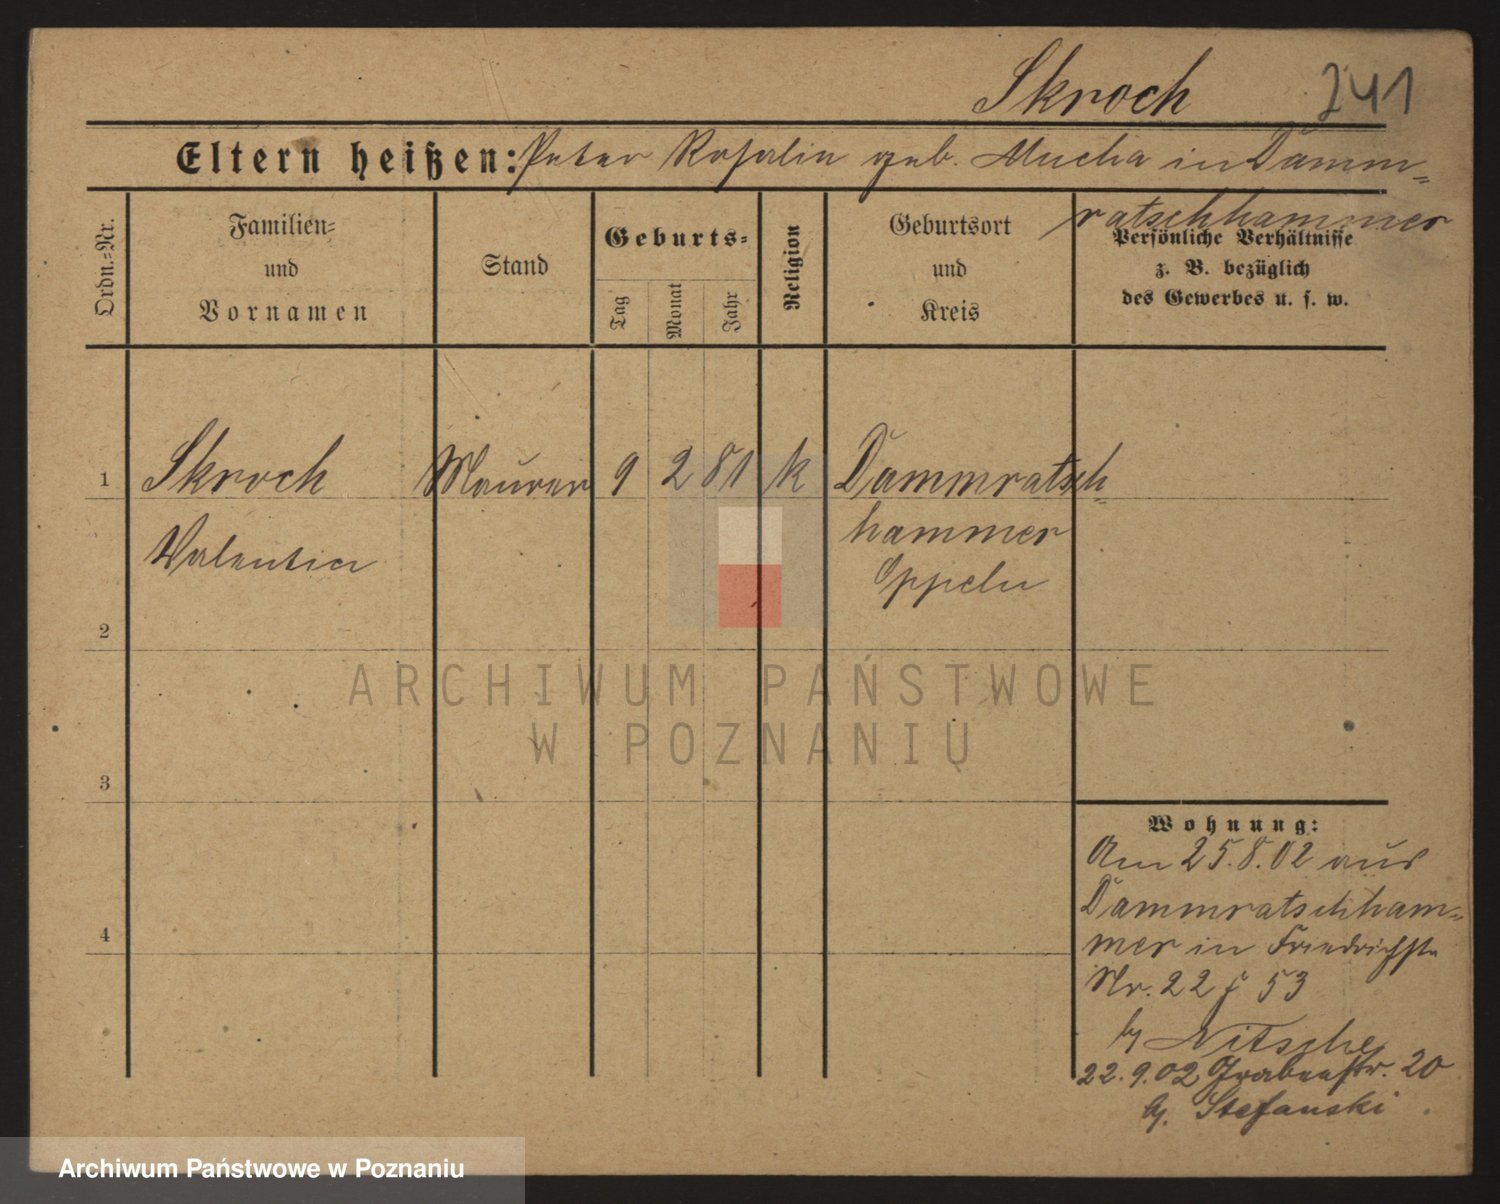 Skroch 241
Eltern heißen: Peter Rosalie geb. Mucha in Damm-
ratschhammer
Ordn.=Nr.
Familien=
und
Vornamen
Stand
Geburts=
Tag
Monat
Jahr
Religion
Geburtsort
und
Kreis
Persönliche Verhältnisse
z. B. bezüglich
des Gewerbes u. s. w.
1 Skroch Maurer 9 2 81 k Dammratsch-
hammer
Valentin
Oppeln
2
3
4
Wohnung:
Am 25.8.02 aus
Dammratschham-
mer in Friedrichstr
Nr. 22 53
Nitsche
22.9.02 Grabenstr. 20
Stefanski
ARCHIWUM PAŃSTWOWE
W POZNANIU
Archiwum Państwowe w Poznaniu